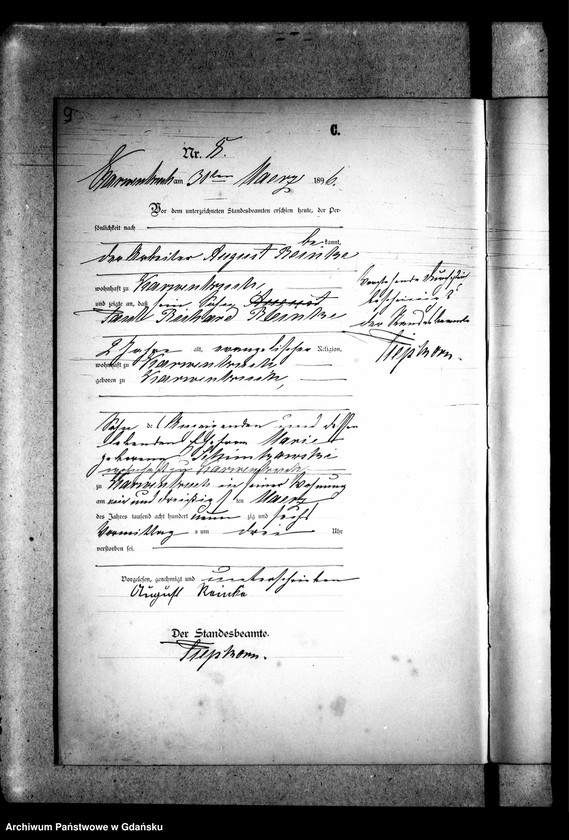 9
C.
Nr. 8.
Karwenbruch am 31ten Maerz 1896.
Vor dem unterzeichneten Standesbeamten erschien heute, der Per-
sönlichkeit nach
be kannt,
der Arbeiter August Reinke
wohnhaft zu Karwenbruch,
und zeigte an, daß sein Sohn August
Richard Reinke
2 Jahre alt, evangelischer Religion,
wohnhaft zu Karwenbruch
geboren zu Karwenbruch,
Sohn des Anzeigenden und dessen
lebenden Ehefrau Marie
geborene
wohnhaft zu Karwenbruch
zu Karwenbruch in seiner Wohnung
am ein und dreißigsten Maerz
des Jahres tausend acht hundert neunzig und sechs
Vormittag s um drei Uhr
verstorben sei.
Vorgelesen, genehmigt und unterschrieben
August Reinke
Der Standesbeamte.
Vorstehende
der Standesbeamte
Archiwum Państwowe w Gdańsku